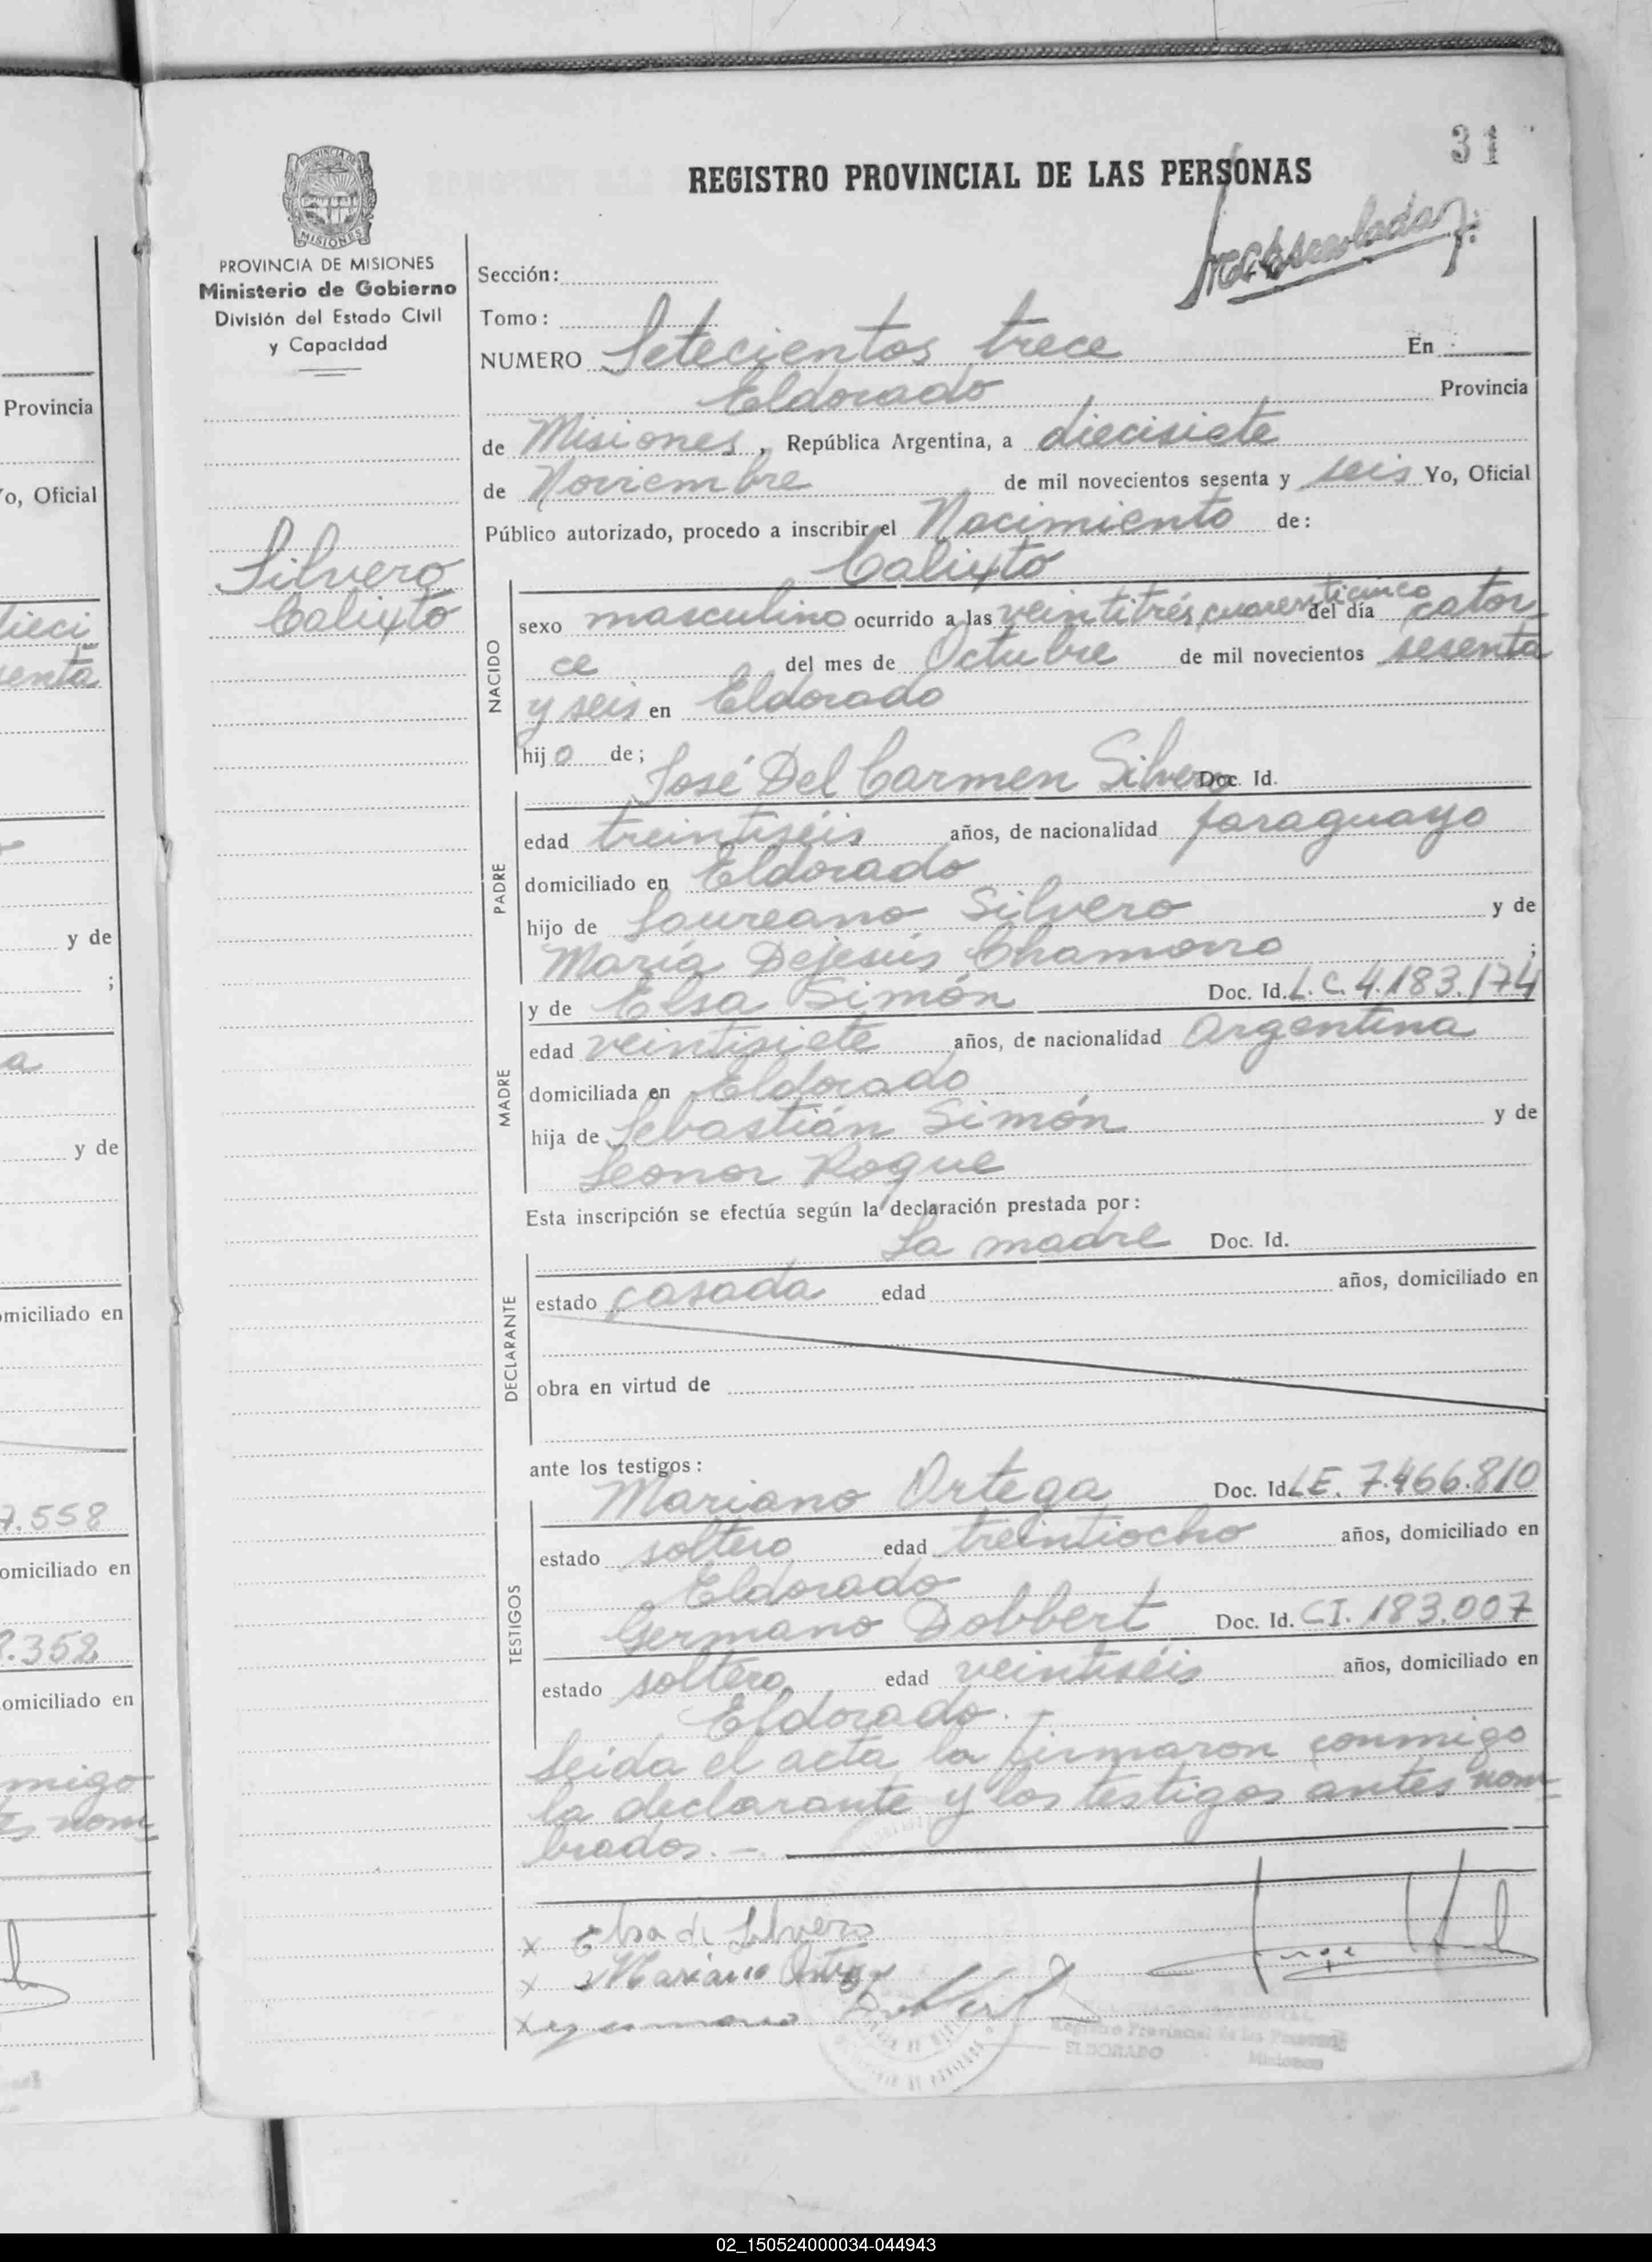 31
REGISTRO PROVINCIAL DE LAS PERSONAS
PROVINCIA DE MISIONES
MISIONES
PROVINCIA DE MISIONES
Ministerio de Gobierno
División del Estado Civil
y Capacidad
Sección:
Tomo:
NUMERO Setecientos trece En
Eldorado Provincia
de Misiones, República Argentina, a diecisiete
de Noviembre de mil novecientos sesenta y seis Yo, Oficial
Público autorizado, procedo a inscribir el Nacimiento de:
Silvero
Calixto
Calixto
NACIDO
sexo masculino ocurrido a las veintitrés, cuarenticinco del día cator
ce del mes de Octubre de mil novecientos sesenta
y seis en Eldorado
hijo de;
José Del Carmen Silvero Doc. Id.
PADRE
edad treintiséis años, de nacionalidad paraguayo
domiciliado en Eldorado
hijo de Laureano Silvero y de
María Dejesús Chamorro ;
y de Elsa Simón Doc. Id. L.C. 4.183.174
MADRE
edad veintisiete años, de nacionalidad argentina
domiciliada en Eldorado
hija de Sebastián Simón y de
Leonor Roque
Esta inscripción se efectúa según la declaración prestada por:
La madre Doc. Id.
DECLARANTE
estado casada edad años, domiciliado en
obra en virtud de
ante los testigos:
Mariano Ortega Doc. Id. LE. 7.466.810
TESTIGOS
estado soltero edad treintiocho años, domiciliado en
Eldorado
Germano Dobbert Doc. Id. CI. 183.007
estado soltero edad veintiséis años, domiciliado en
Eldorado.
Leida el acta la firmaron conmigo
la declarante y los testigos antes nom
brados. -.
x Elsa de Silvero
x Mariano Ortega
x Dobbert
Registro Provincial de las Personas
ELDORADO - Misiones
Provincia
Yo, Oficial
dieci
senta
y de
;
a
y de
omiciliado en
7.558
omiciliado en
.352
omiciliado en
migo
nom
02_150524000034-044943